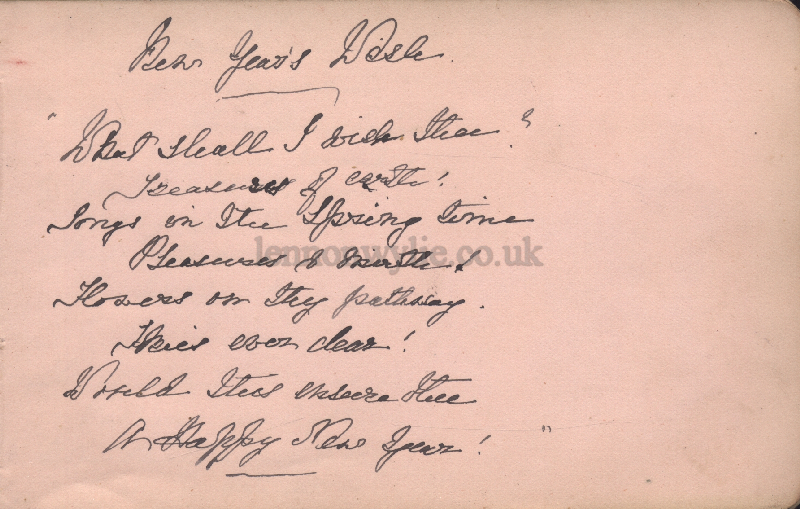 New Year's Wish.
"What shall I wish thee?
Treasures of earth!
Songs in the Spring time
Pleasures & mirth!
lennonwylie.co.uk
Flowers on thy pathway.
Skies ever clear!
Would this ensure thee
A Happy New Year! "